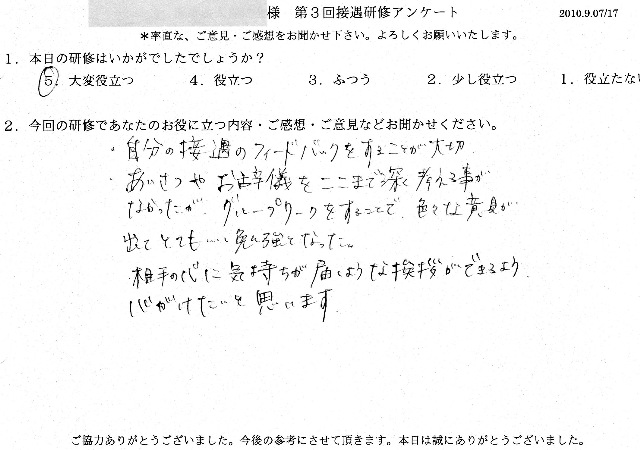 様 第3回接遇研修アンケート
2010.9.07/17
＊率直な、ご意見・ご感想をお聞かせ下さい。よろしくお願いいたします。
1. 本日の研修はいかがでしたでしょうか？
5. 大変役立つ 4. 役立つ 3. ふつう 2. 少し役立つ 1. 役立たな
2. 今回の研修であなたのお役に立つ内容・ご感想・ご意見などお聞かせください。
・自分の接遇のフィードバックをすることが大切
・あいさつやお辞儀をここまで深く考える事が
なかったが、グループワークをすることで、色々な意見が
出て とてもいい勉強となった。
相手の心に気持ちが届くような挨拶ができるよう
心がけたいと思います。
ご協力ありがとうございました。今後の参考にさせて頂きます。本日は誠にありがとうございました。